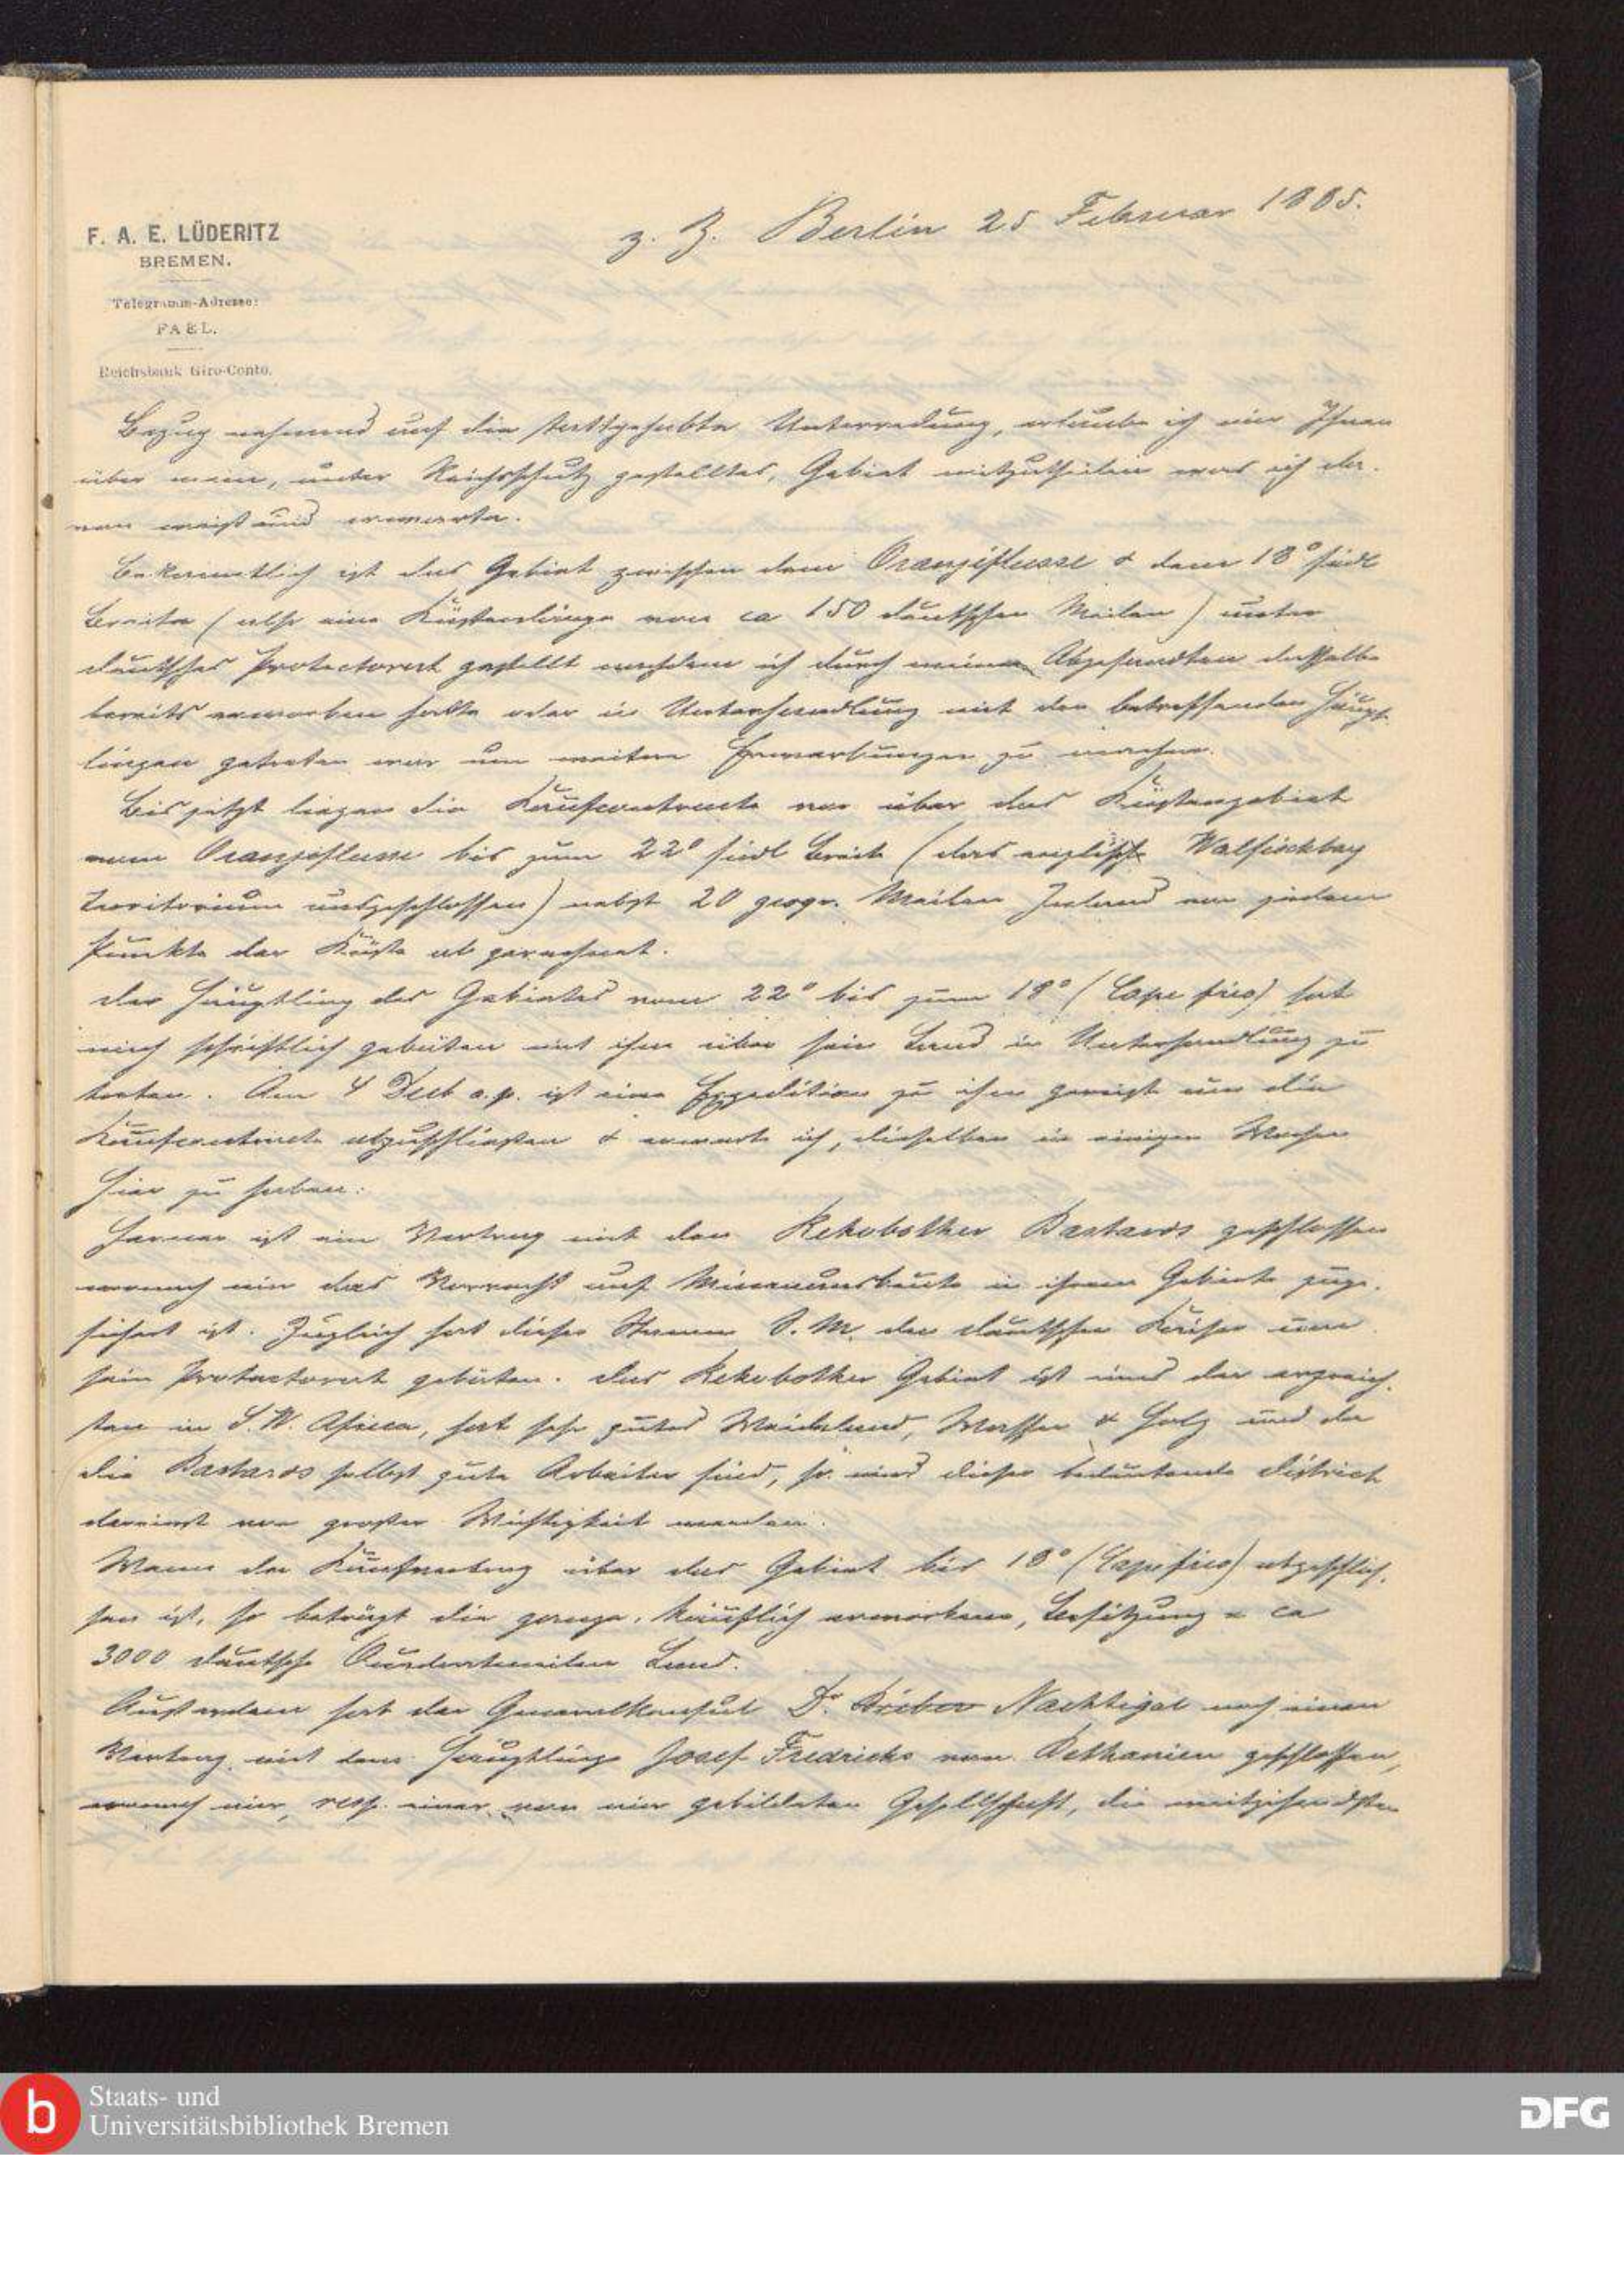 F. A. E. LÜDERITZ
BREMEN.
Telegramm-Adresse:
FAEL.
Reichsbank Giro-Conto.
z. Z. Berlin 25 Februar 1885.
Bezug nehmend auf die stattgehabte Unterredung, erlaube ich mir Ihnen
über mein, unter Reichsschutz gestelltes, Gebiet mitzutheilen was ich da-
von weiß und erwarte.
Bekanntlich ist das Gebiet zwischen dem Oranjeflusse & dem 18° südl
Breite (also eine Küstenlänge von ca 150 deutschen Meilen) unter
deutsches Protectorat gestellt nachdem ich durch meine Abgesandten dasselbe
bereits erworben hatte oder in Unterhandlung mit den betreffenden Häupt-
lingen getreten war um weitere Erwerbungen zu machen.
Bis jetzt liegen die Kaufcontracte vor über das Küstengebiet
vom Oranjeflusse bis zum 22° südl Breite (das englische Walfischbay
Territorium ausgeschlossen) nebst 20 geogr. Meilen Inland von jedem
Punkte der Küste ab gerechnet.
der Häuptling des Gebietes vom 22° bis zum 18° (Cape frio) hat
mich schriftlich gebeten mit ihm über sein Land in Unterhandlung zu
treten. Am 4 Decb a.p. ist eine Expedition zu ihm gereist um die
Kaufcontracte abzuschließen & erwarte ich, dieselben in einigen Wochen
hier zu haben.
Ferner ist ein Vertrag mit den Rehobother Bastards geschlossen
wonach mir das Vorrecht auf Minenausbeute in ihrem Gebiete zuge-
sichert ist. Zugleich hat dieser Stamm S. M. den deutschen Kaiser um
sein Protectorat gebeten. das Rehobother Gebiet ist eins der erzreich-
sten in S. W. Africa, hat sehr gutes Weideland, Wasser & Holz und da
die Bastards selbst gute Arbeiter sind, so wird dieser bedeutende District
dereinst von großer Wichtigkeit werden.
Wenn der Kaufvertrag über das Gebiet bis 18° (Cape frio) abgeschlos-
sen ist, so beträgt die ganze, käuflich erworbene, Besitzung = ca
3000 deutsche Quadratmeilen Land.
Außerdem hat der Generalkonsul Dr. Nachtigal noch einen
Vertrag mit dem Häuptlinge Josef Fredricks von Bethanien geschlossen,
wonach mir, resp. einer von mir gebildeten Gesellschaft, die weitgehendsten
Staats- und
Universitätsbibliothek Bremen
DFG